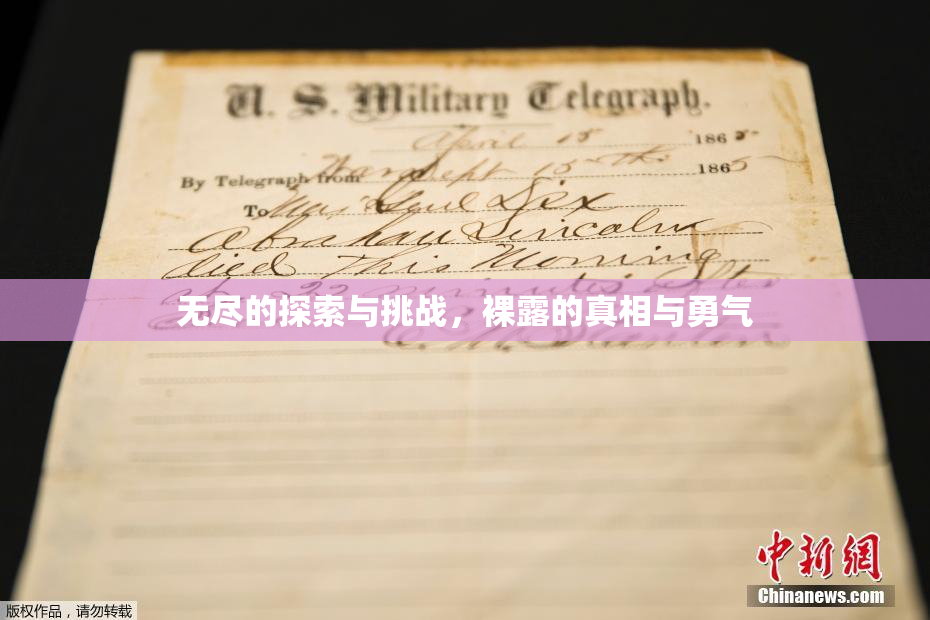 U. S. Military Telegraph.
April 15 1865
By Telegraph from War Dept 15th 1865
To Maj Genl Dix
Abraham Lincoln
died This Morning
22 minutes after
无尽的探索与挑战，裸露的真相与勇气
中新网
Chinanews.com
版权作品，请勿转载